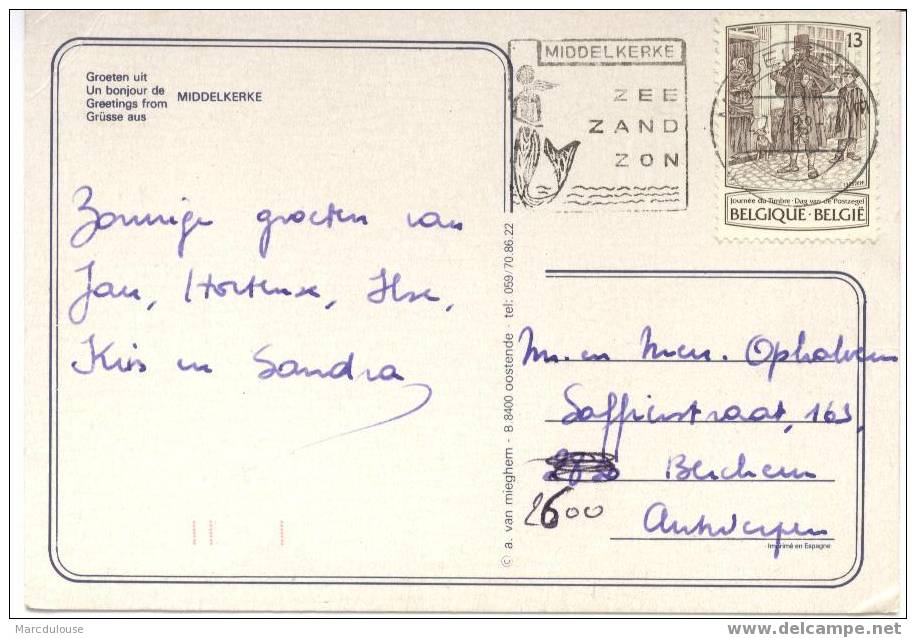 Groeten uit
Un bonjour de
Greetings from
Grüsse aus
MIDDELKERKE
Zonnige groeten van
Jan, Hortense, Ilse,
Kris en Sandra
© a. van mieghem - B.8400 oostende - tel: 059/70.86.22
MIDDELKERKE
ZEE
ZAND
ZON
13
Journée du Timbre · Dag van de Postzegel
BELGIQUE · BELGIË
Mr. en Mevr.
Saffierstraat, 163,
Berchem
2600
Antwerpen
Imprimé en Espagne
Marcdulouse
delcampe.net